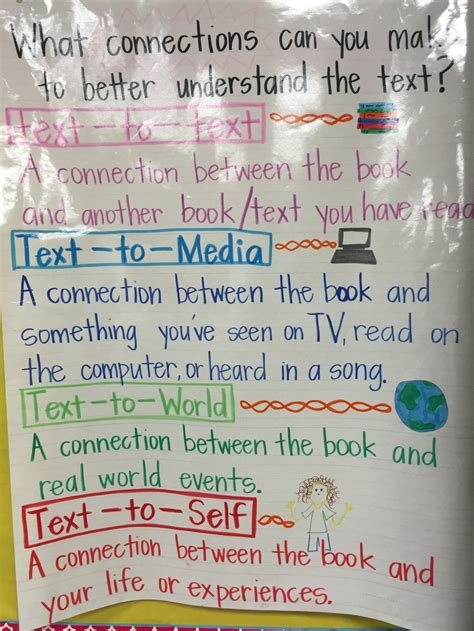 What connections can you mak
to better understand the text?
text-to-text
A connection between the book
and another book/text you have read
Text-to-Media
A connection between the book and
something you've seen on TV, read on
the computer, or heard in a song.
Text-to-World
A connection between the book and
real world events.
Text-to-Self
A connection between the book and
your life or experiences.